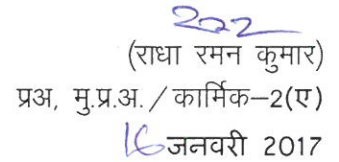 (राधा रमन कुमार)
प्रअ, मु.प्र.अ. / कार्मिक–2(ए)
16 जनवरी 2017